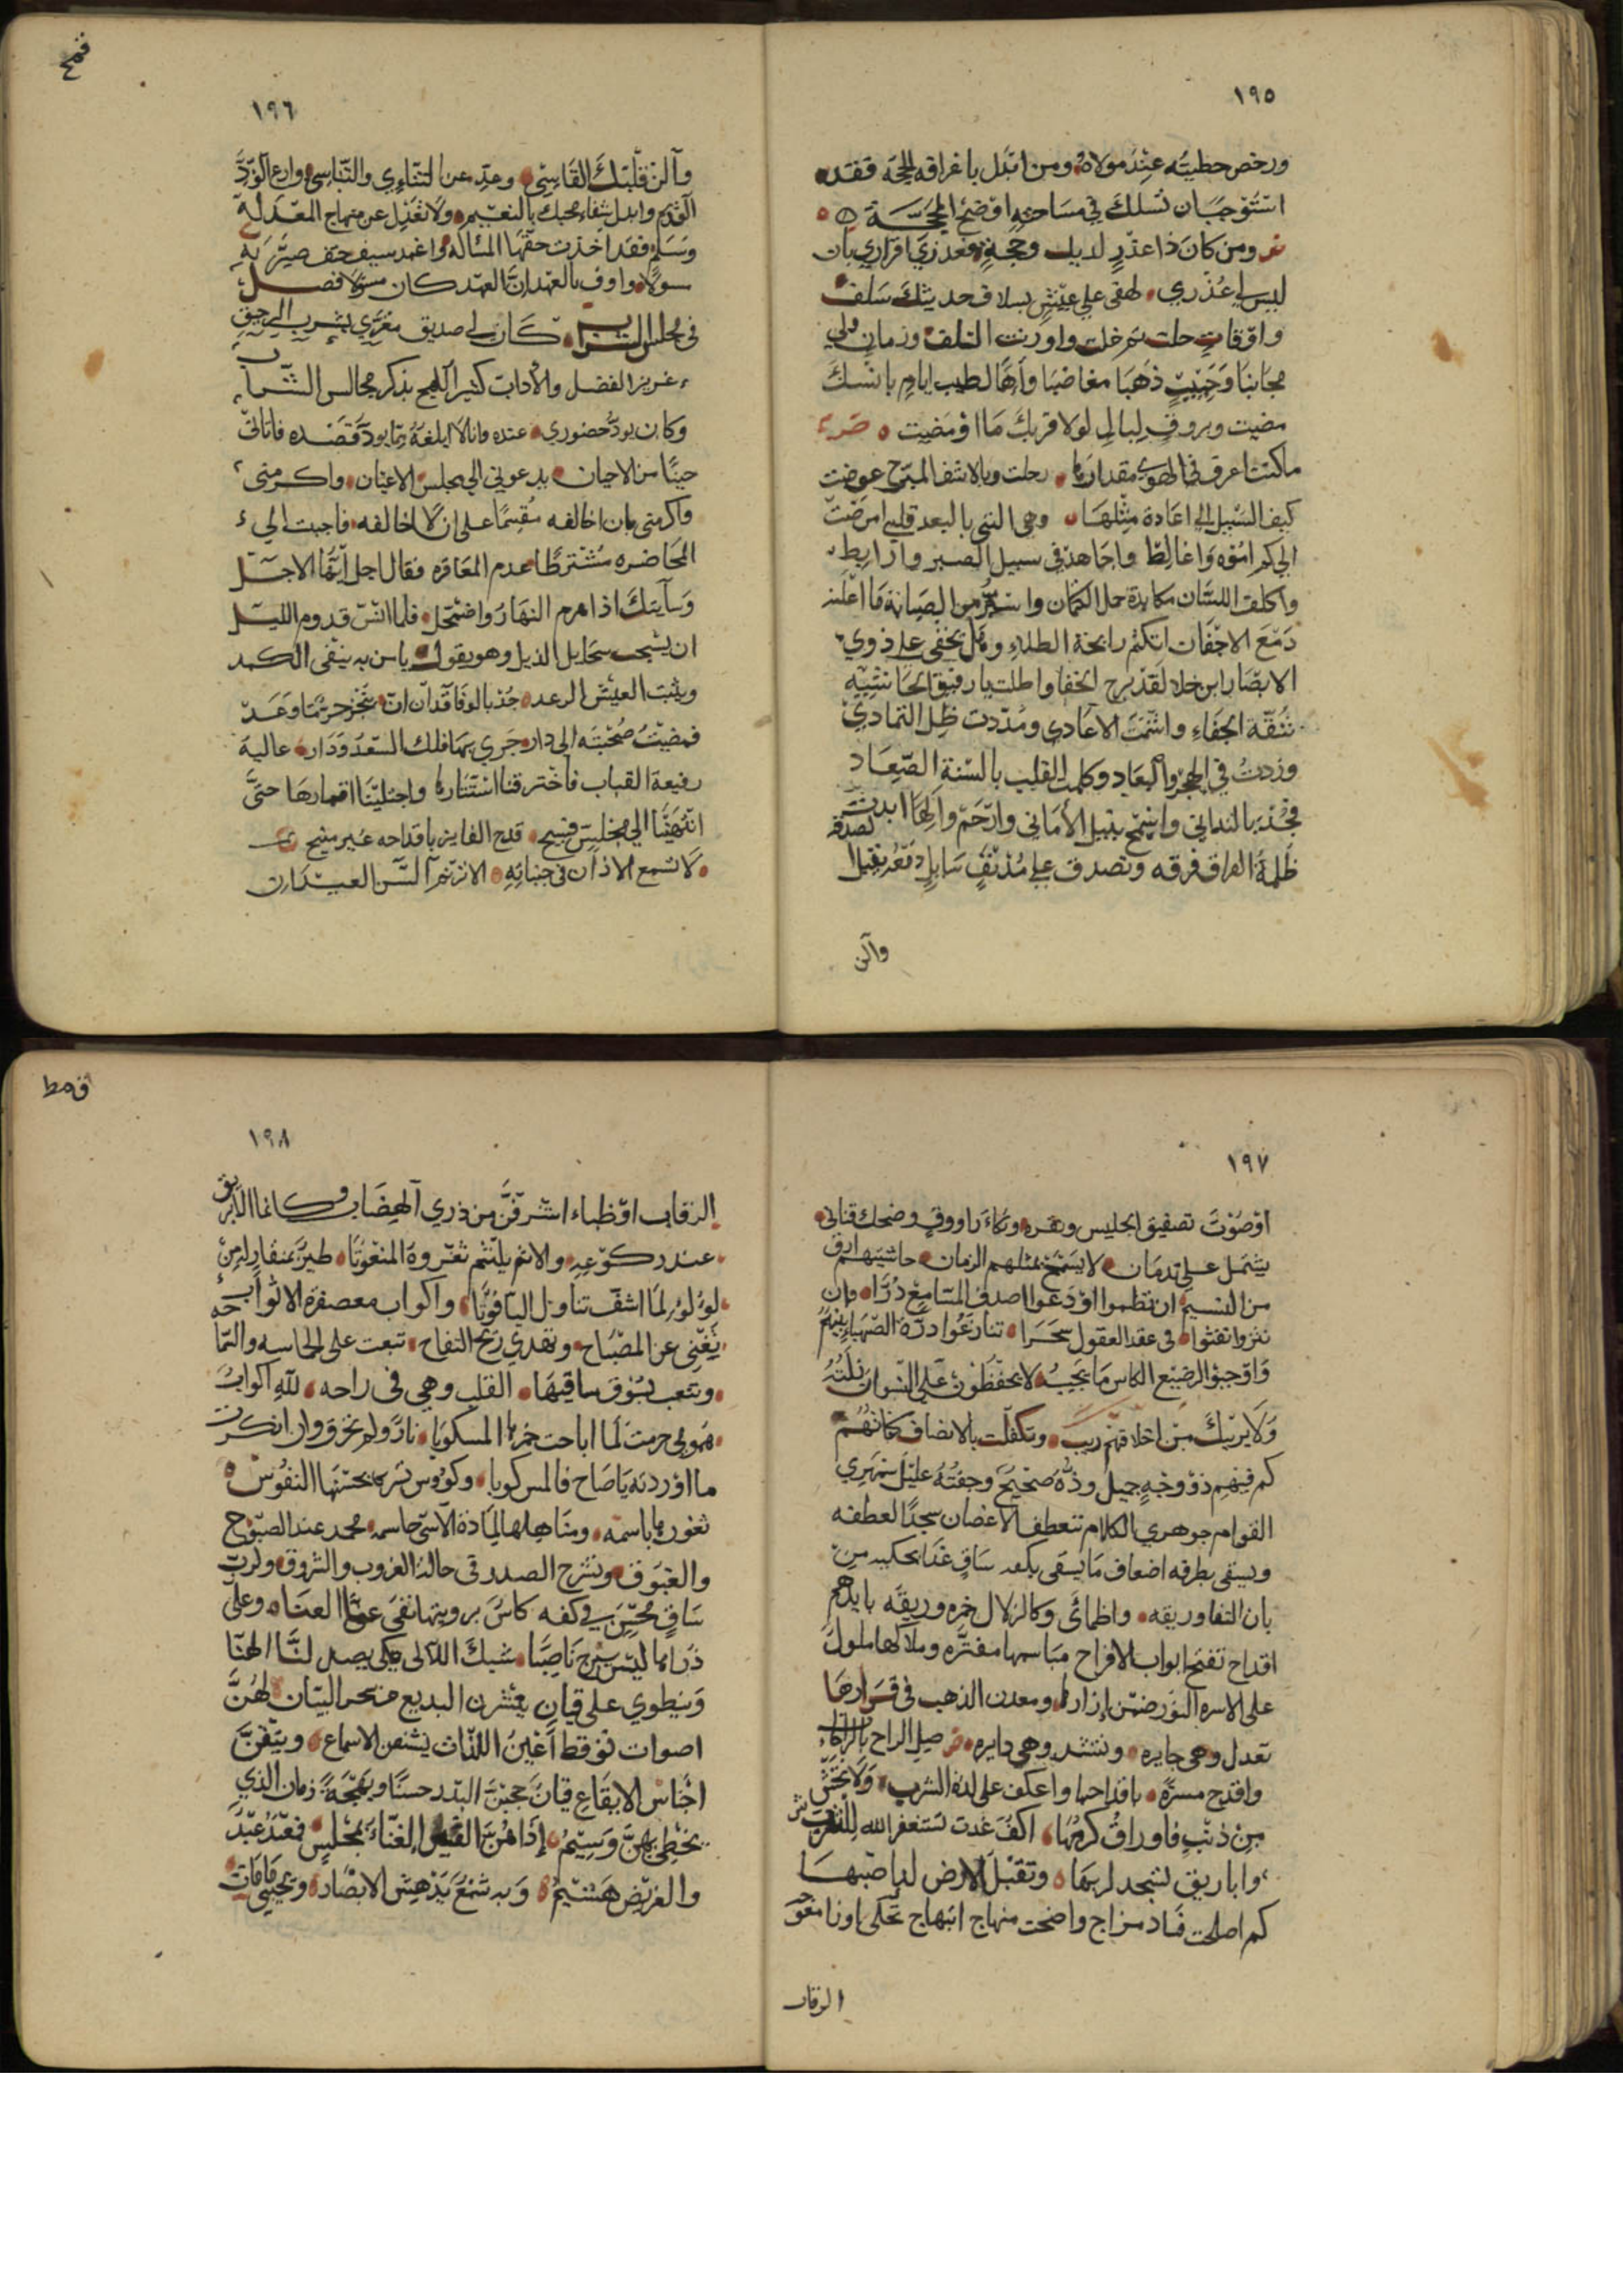 ١٩٥
ورخص خطيته عند مولاه ومن ابتدل باعترافه الحجة فقد
استوجب ان تسلك في مسامحته اوضح المحجة
شعر ومن كان ذا عذر لديك وحجة فعذري اقراري بان
ليس لي عذري لهفي على عيش بسلاف حديثك سلف
واوقات حلت ثم خلت واورثت التلف وزمان ولى
مجانبا وحبيب ذهب مغاضبا وآها لطيب ايام بانسك
مضيت وبروق ليال لولا قربك ما اومضت
ماكنت اعرف في الهوى مقدارها رحلت وبالاسف المبرح عوضت
كيف السبيل الى اعادة مثلها وهي التي بالبعد قلبي امرضت
الى كم اموه واغالط واجاهد في سبيل الصبر وارابط
واكلف اللسان مكابدة حمل الكتمان واستر من الصيانة ما اعلنه
دمع الاجفان اتكتم رايحة الطلاء وهل يخفى على ذوي
الابصار ابن جلا لقد برح الخفا واطلت يا رفيق الحاشية
شقة الجفاء واشمت الاعادي ومددت ظل التمادي
وزدت في الهجر والبعاد وكلمت القلب بالسنة الصعاد
فجد بالتداني واسمح بنيل الأماني وارحم والها ابدت لصدق
ظلمة الفراق فرقه وتصدق على مدنف سايل دمعه
وآلن
١٩٦
قمح
وآلن قلبك القاسي وعد عن التنائي والتناسي وارع الود
القديم وابدل شقاء محبك بالنعيم ولا تعدل عن منهاج المعدلة
وسلم فقد اخذت حقها المسألة واغمد سيف حتف صيرته
سولا واوف بالعهد ان العهد كان مسولا فصل
في مجلس الشراب كان لي صديق مغرى بشرب الرحيق
غزير الفضل والآداب كثير اللهج بذكر مجالس الشراب
وكان يود حضوري عنده وانا لا ابلغه مما يود قصده فاتاني
حينا من الاحيان يدعوني الى مجلس الاعيان واكرمني
واكرمني بان اخالفه مقسما على ان لا اخالفه فاجبت الى
المحاضره مشترطا عدم المعاقره فقال اجل ايها الاجل
وسآيتك اذا هرم النهار واضمحل فلما انس قدوم الليل
ان يسحب سحايل الذيل وهو يقول يا من به ينفى الكمد
ويثبت العيش الرعد جد بالوفا فقد آن ان ينجز حر ما وعد
فمضيت صحبته الى دار جرى بها فلك السعد ودار عالية
رفيعة القباب فاخترقنا استتارها واجتلينا اقمارها حتى
انتهينا الى مجلس فسيح قدح الفايز باقداحه غير منيح
لا تسمع الاذان في جنباته الا ترنم آلسن العيدان
١٩٧
اوصوت تصفيق الجليس ونقره وبكاء راووق وضحك قناني
يشتمل على ندمان لا يسمح بمثلهم الزمان حاشيتهم ارق
من النسيم ان نظموا اودعوا اصداف المسامع دررا وان
نثروا نفثوا في عقد العقول سحرا تنازعوا درة الصهباء بينهم
واوجبوا الرضيع الكاس ما يجب لا يحفظون على النشوان زلته
ولا يريبك من اخلاقهم ريب وتكفلت بالانصاف كفاتهم
كم فيهم ذو وجه جميل وده صحيح وجفنه عليل سمهري
القوام جوهري الكلام تنعطف الاغصان سجدا لعطفه
ويسقي بطرفه اضعاف ما يسقي بكفه ساق غدا يحكيه من
بان النقا وريقه واظمائي وكالزلال خمره وريقه بايدهم
اقداح تفتح ابواب الافراح مباسمها مفتره وملآكها ملوك
على الاسره النور ضمن ازارها ومعدن الذهب في قرارها
تعدل وهي جايره وتنشد وهي دايره صل الراح بالراحات
واقدح مسرة باقداحها واعكف على لذة الشرب ولا تخش
من ذنب فاوراق كرمها اكف غدت تستغفر الله للشرب
واباريق تسجد لربها وتقبل الارض لدا صبها
كم اصلحت فساد مزاج واضحت منهاج ابتهاج تحكي اوزا معوج
الرقاب
١٩٨
قمط
الرقاب اوظباء اشرفن من ذرى الهضاب وكانما الابريق
عند ركوعه والاثم يلثم ثغروة المنعوتا طير بمنقار له من
لؤلؤ لما اشف تناول الياقوتا واكواب معصفرة الاثواب
يغني عن المصباح وتهدي ريح التفاح تبعت على الحاسه والسما
وتتعب بسوق ساقيها القلب وهي في راحه لله اكواب
همومي حرمت لما اباحت خمرها المسكوبا نار ولم تحرق وان انكرت
ما اوردته ياصاح فالمس كوبا وكوس شربها بحسنها النفوس
ثغورها باسمه ومناهلها لمادة الاسى حاسمه محمد عند الصبوح
والغبوق وتشرح الصدر في حالة الغروب والشروق ولرب
ساق محسن في كفه كاس برويتها نفى عنا العنا وعلى
ذراها ليس يبرح ناصبا شبك اللآلى كي يصيد لنا الهنا
وينطوي على قيان ينشرن البديع من سحر البيان لهن
اصوات توقظ اعين اللذات يشنفن الاسماع ويتيقن
اجناس الايقاع قيان حجبن البدر حسنا وبهجة زمان الذي
يحظى بهن وسيم اذا هن القين الغناء بمجلس فمعبد عبد
والغريض هشيم وبه شمع يدهش الابصار ويحيى ما فات